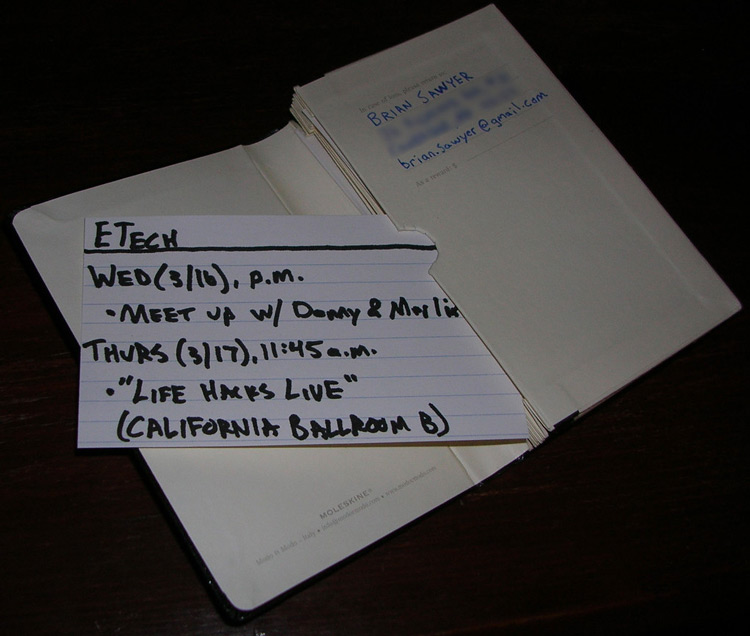 In case of loss, please return to:
BRIAN SAWYER
brian.sawyer@gmail.com
As a reward: $
ETECH
WED (3/16), p.m.
• MEET UP w/ Danny & Merlin
THURS (3/17), 11:45 a.m.
• "LIFE HACKS LIVE"
(CALIFORNIA BALLROOM B)
MOLESKINE®